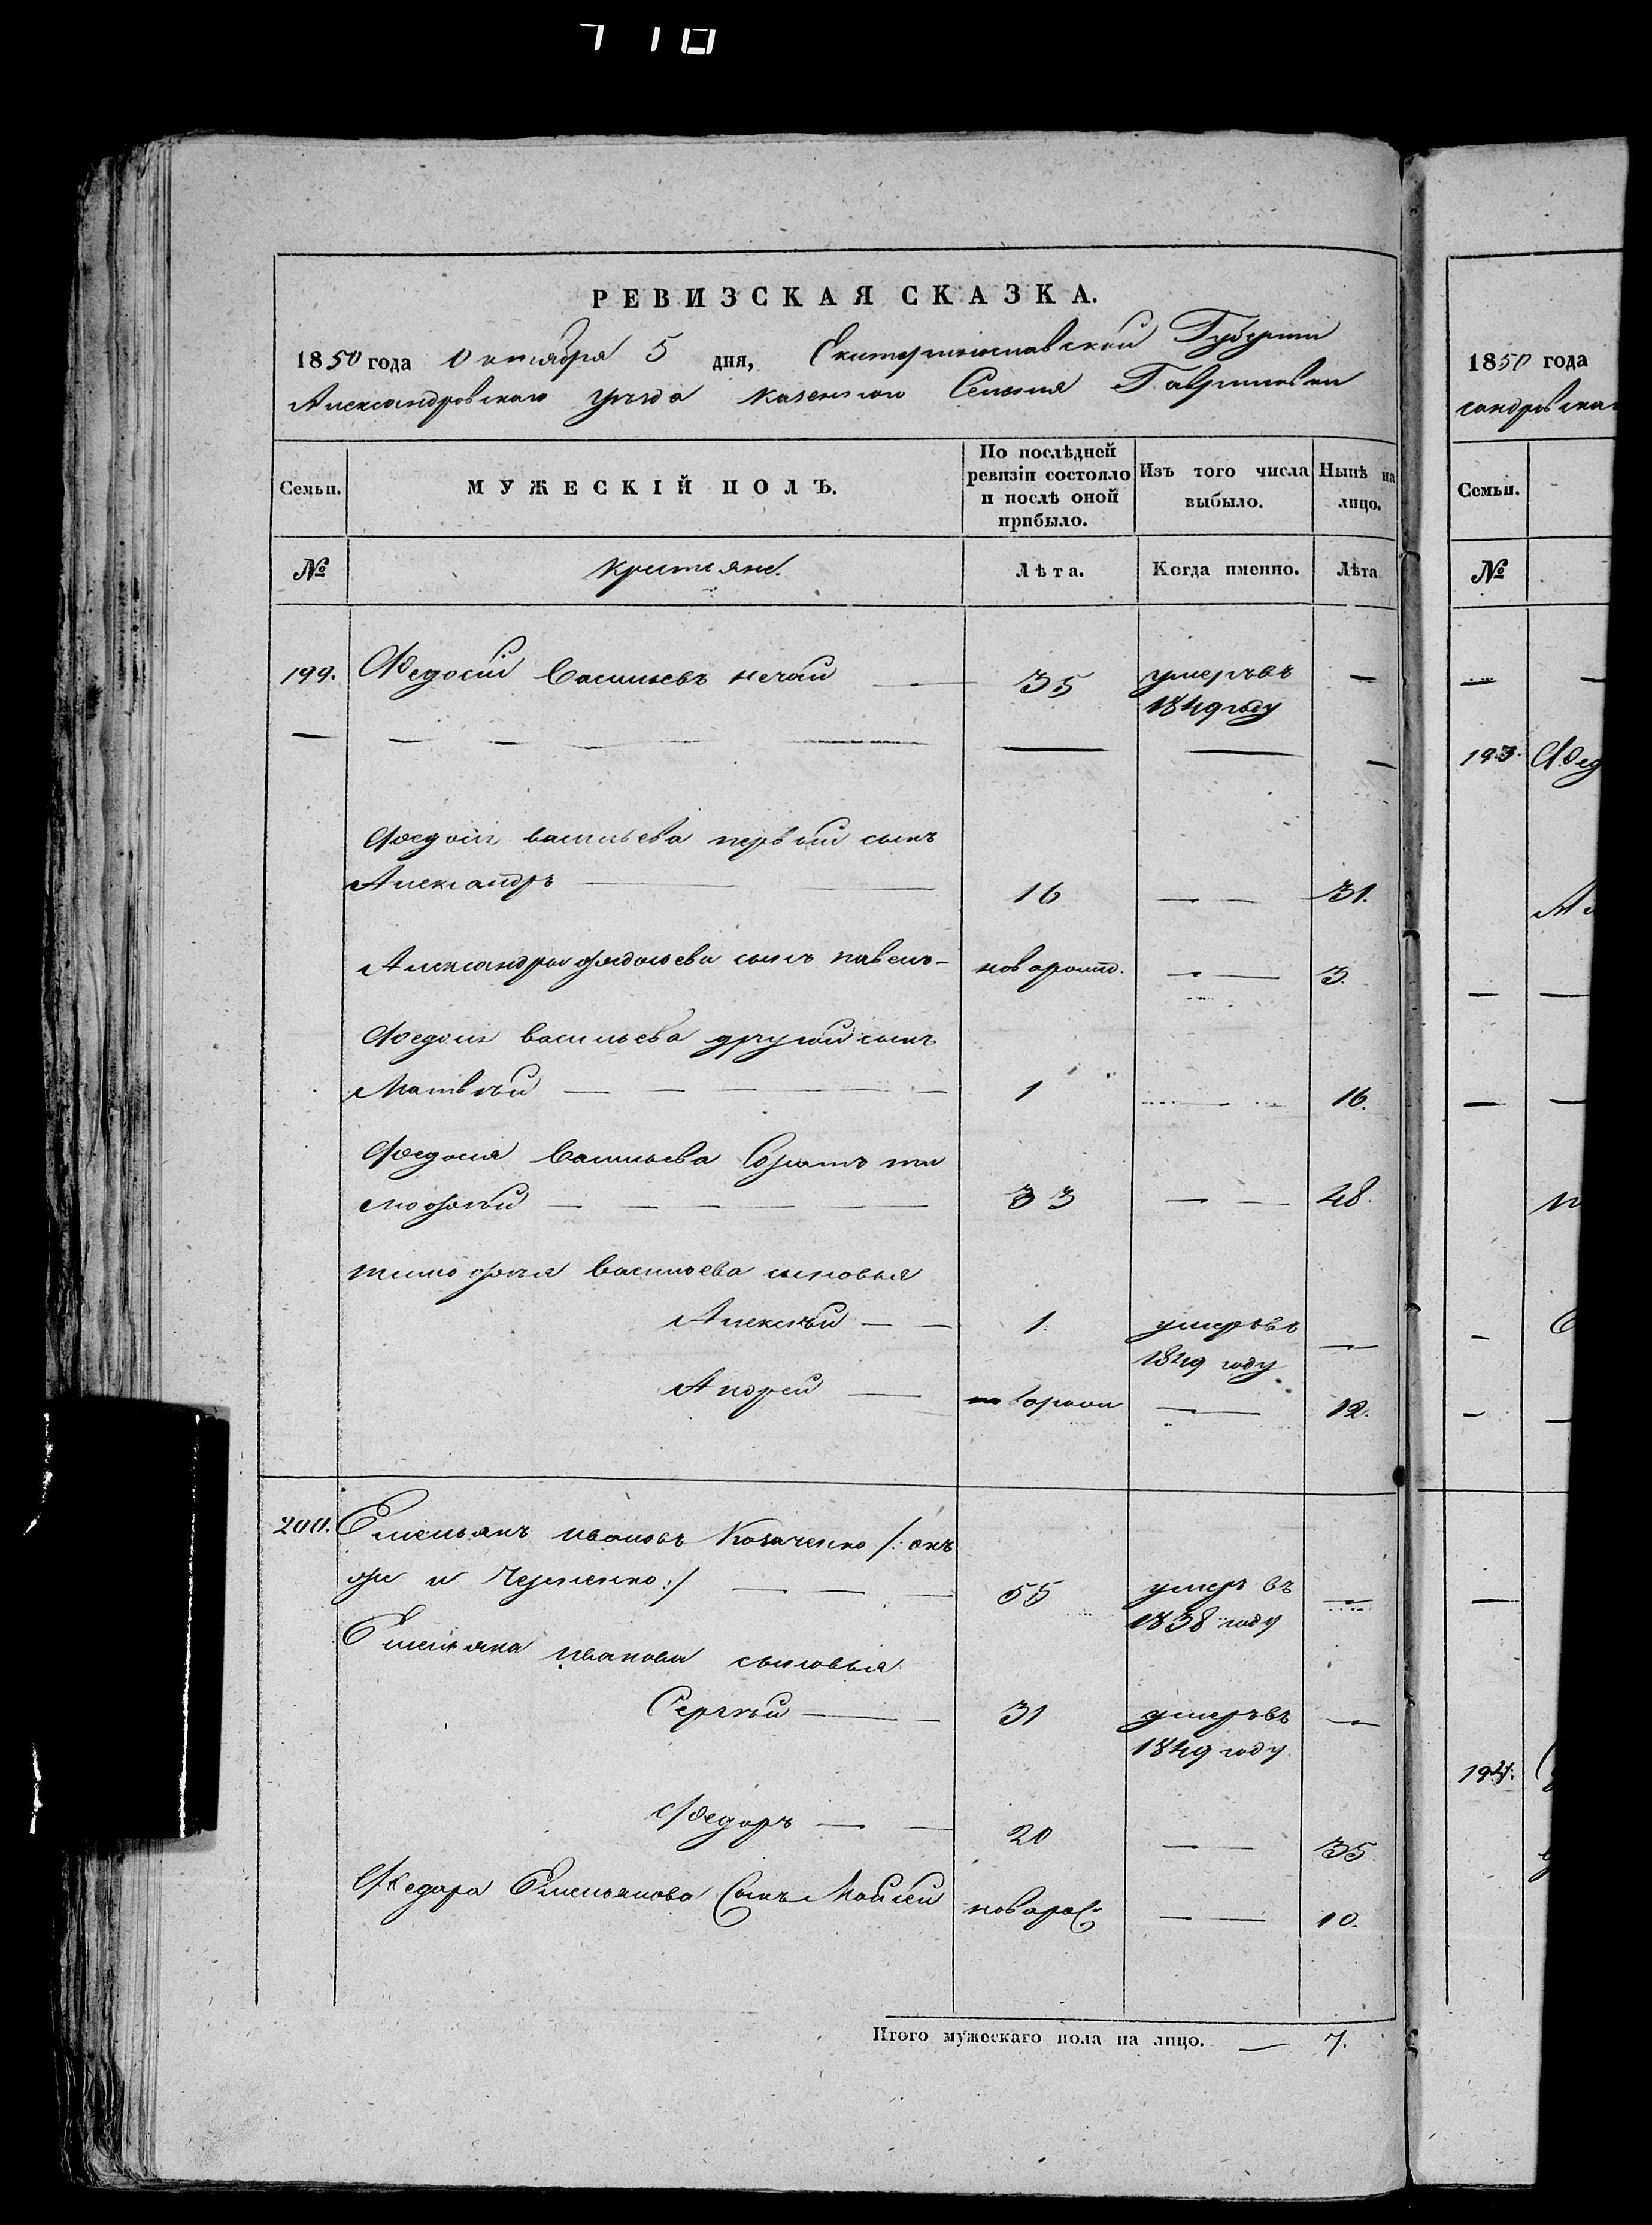 710
РЕВИЗСКАЯ СКАЗКА.
1850 года Октября 5 дня, Екатеринославской Губернии
Александровского уезда казенного Селения Гавриловки
Семьи.
МУЖЕСКІЙ ПОЛЪ.
По послѣдней ревизіи состояло и послѣ оной прибыло.
Изъ того числа выбыло.
Нынѣ на лицо.
№
крестьяне.
Лѣта.
Когда именно.
Лѣта
199. Федосій Васильевъ нечай — 35 умеръ въ —
1849 году
Федосія васильева первый сынъ
Александръ — 16 — 31.
Александра федосьева сынъ павелъ — новорожд. — 3.
Федосія васильева другой сынъ
Матвѣй — 1 — 16.
Федосія Васильева братъ ти
мофѣй — 33 — 48.
тимофѣя Васильева сыновья
Алексѣй — 1. умеръ въ —
1849 году
Андрей — новорожд — 12.
200. Емельянъ ивановъ Козаченко /: онъ
же и Черненко :/ — 55 умеръ въ —
1838 году
Емельяна иванова сыновья
Сергѣй — 31 умеръ въ —
1849 году
Федоръ — 20 — 35
Федора Емельянова Сынъ Моисей новорож — 10.
Итого мужескаго пола на лицо. — 7.
1850 года
сандровска
Семьи.
№
193. Фед
194.